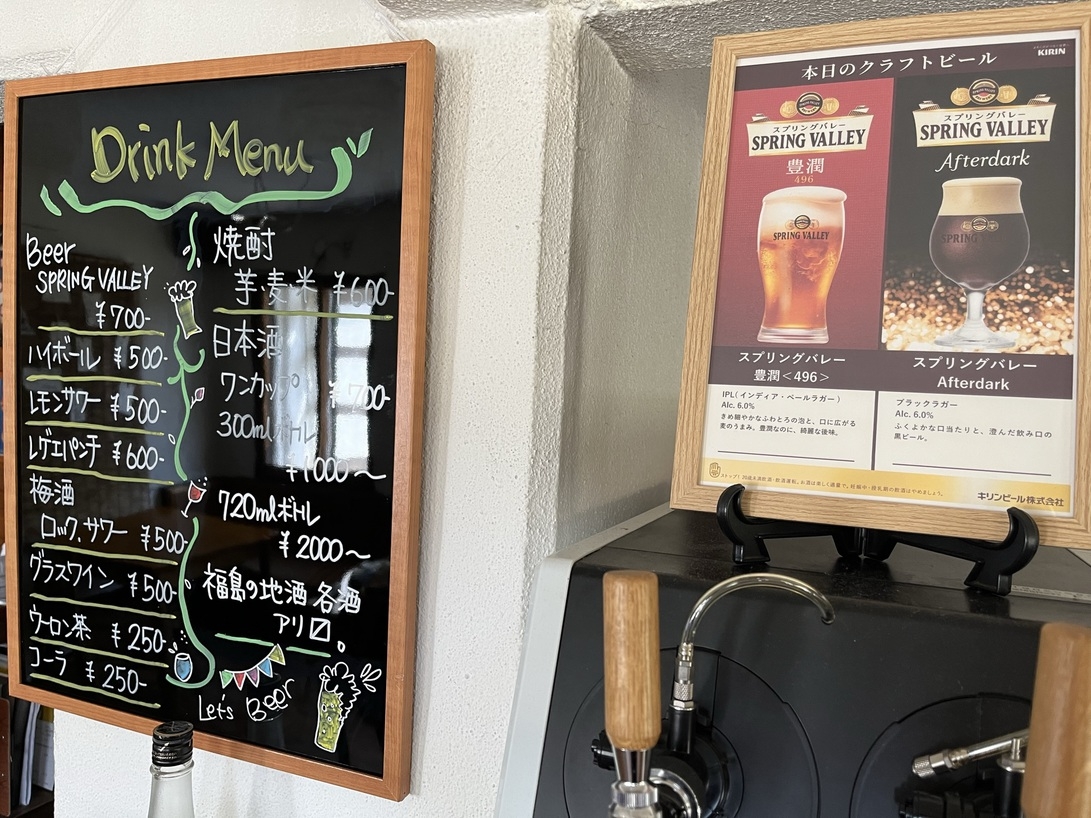 Drink Menu
Beer
SPRING VALLEY
¥700-
ハイボール ¥500-
レモンサワー ¥500-
レゲエパンチ ¥600-
梅酒
ロック、サワー ¥500-
グラスワイン ¥500-
ウーロン茶 ¥250-
コーラ ¥250-
焼酎
芋・麦・米 ¥600-
日本酒
ワンカップ ¥700-
300mlボトル
¥1000～
720mlボトル
¥2000～
福島の地酒 各酒
アリ〼。
Let's Beer
KIRIN
本日のクラフトビール
スプリングバレー
SPRING VALLEY
豊潤
496
SPRING VALLEY
スプリングバレー
豊潤<496>
IPL(インディア・ペールラガー)
Alc. 6.0%
きめ細やかなふわとろの泡と、口に広がる
麦のうまみ。豊潤なのに、綺麗な後味。
スプリングバレー
SPRING VALLEY
Afterdark
SPRING VALLEY
スプリングバレー
Afterdark
ブラックラガー
Alc. 6.0%
ふくよかな口当たりと、澄んだ飲み口の
黒ビール。
ストップ!20歳未満飲酒・飲酒運転。お酒は楽しく適量で。妊娠中・授乳期の飲酒はやめましょう。
キリンビール株式会社